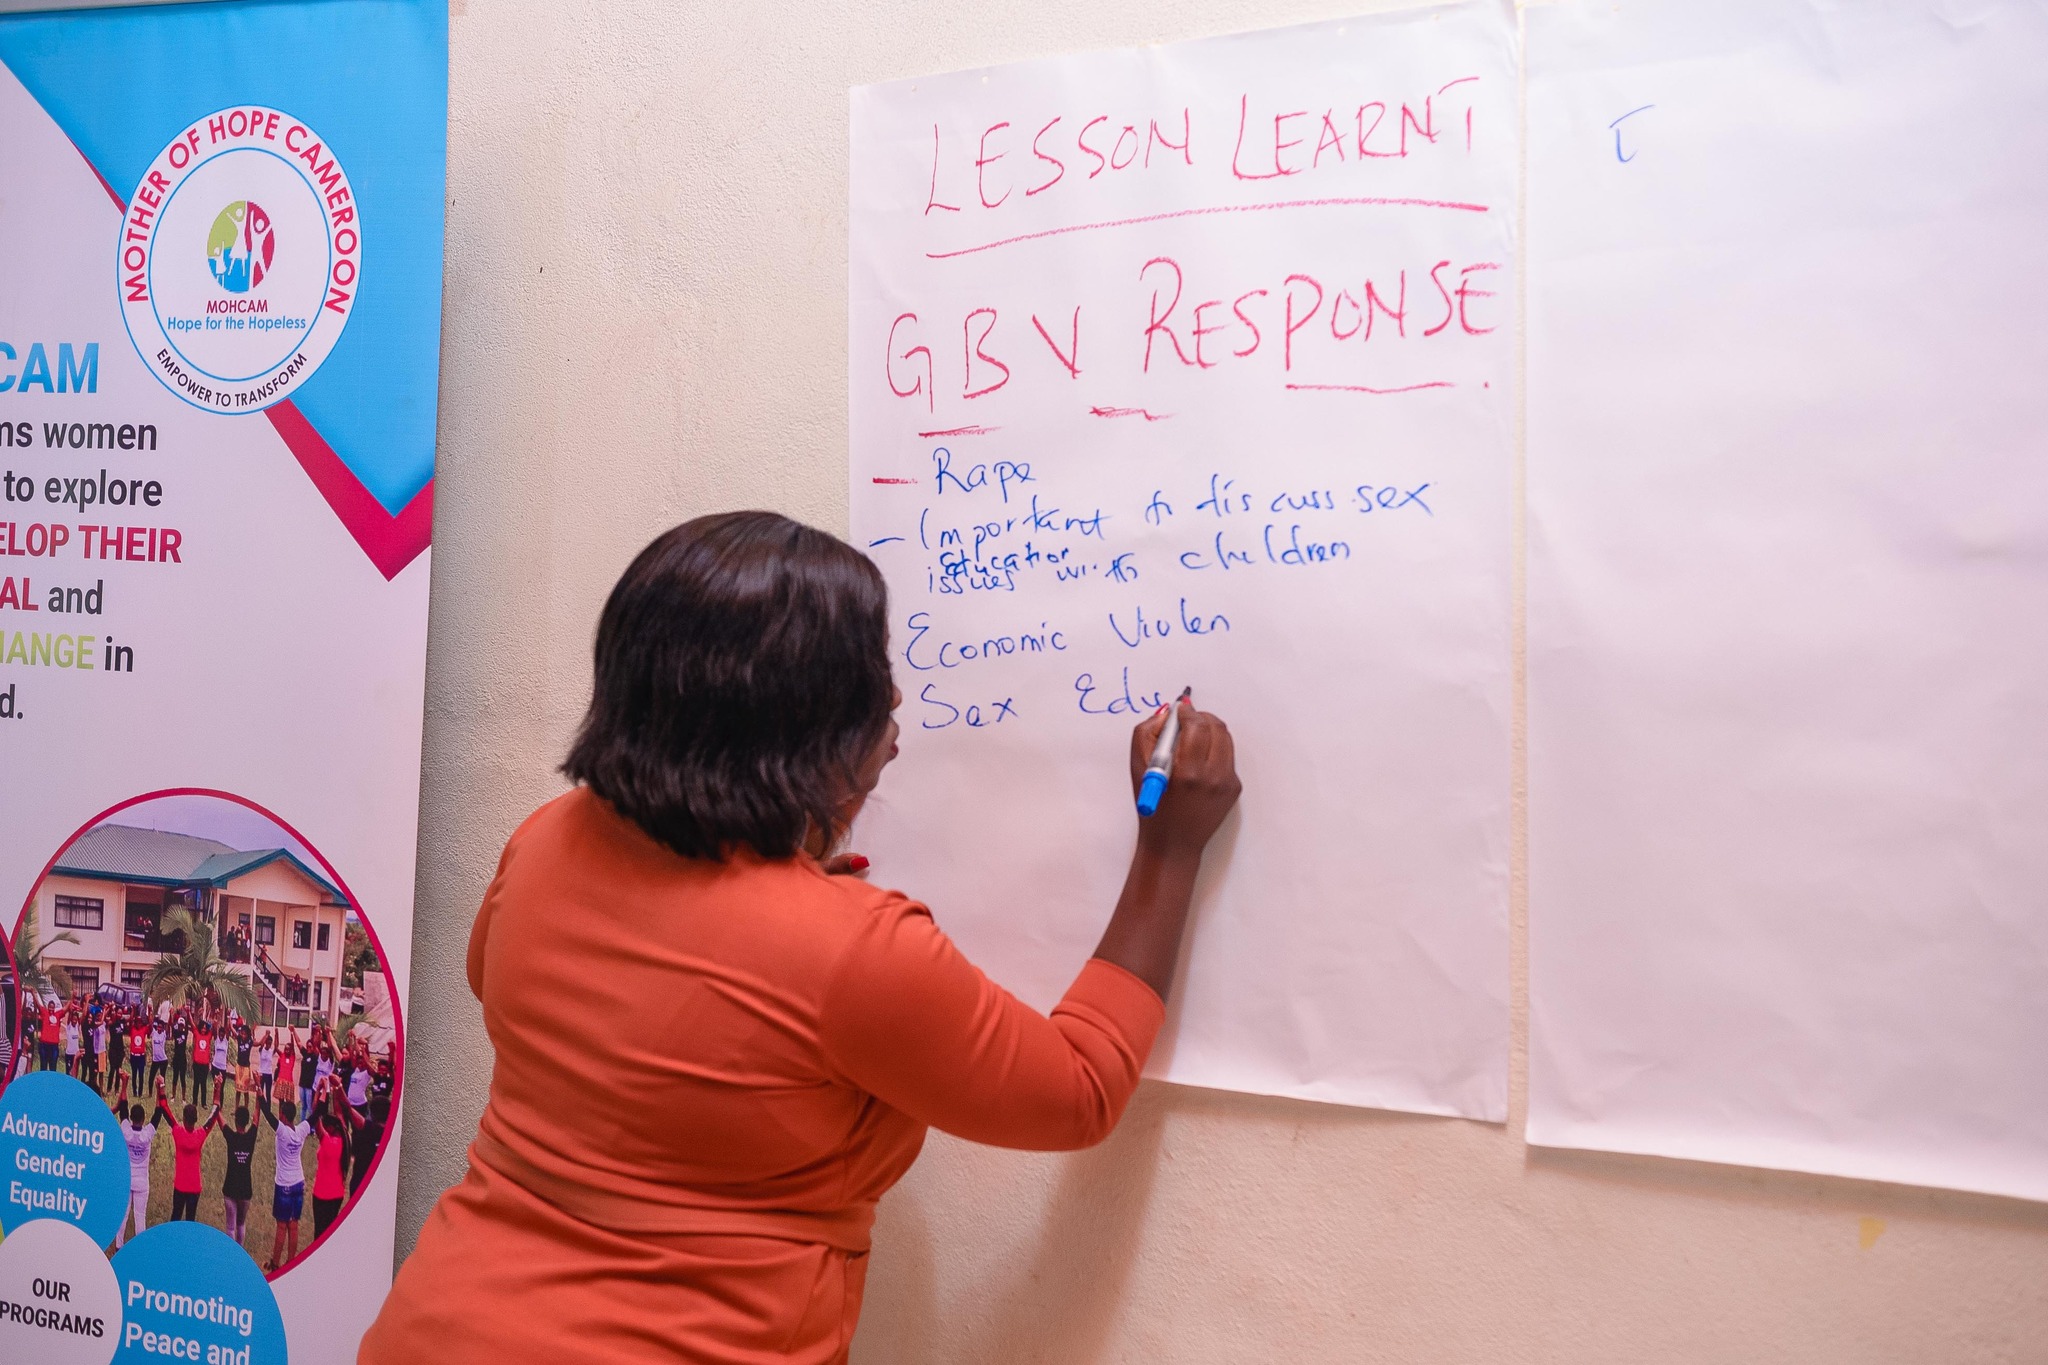 MOTHER OF HOPE CAMEROON
MOHCAM
Hope for the Hopeless
EMPOWER TO TRANSFORM
CAM
ms women
to explore
ELOP THEIR
AL and
HANGE in
d.
Advancing
Gender
Equality
OUR
PROGRAMS
Promoting
Peace and
LESSON LEARNT
GBV RESPONSE
- Rape
- Important to discuss sex
education
issues with children
Economic Violen
Sex Edu